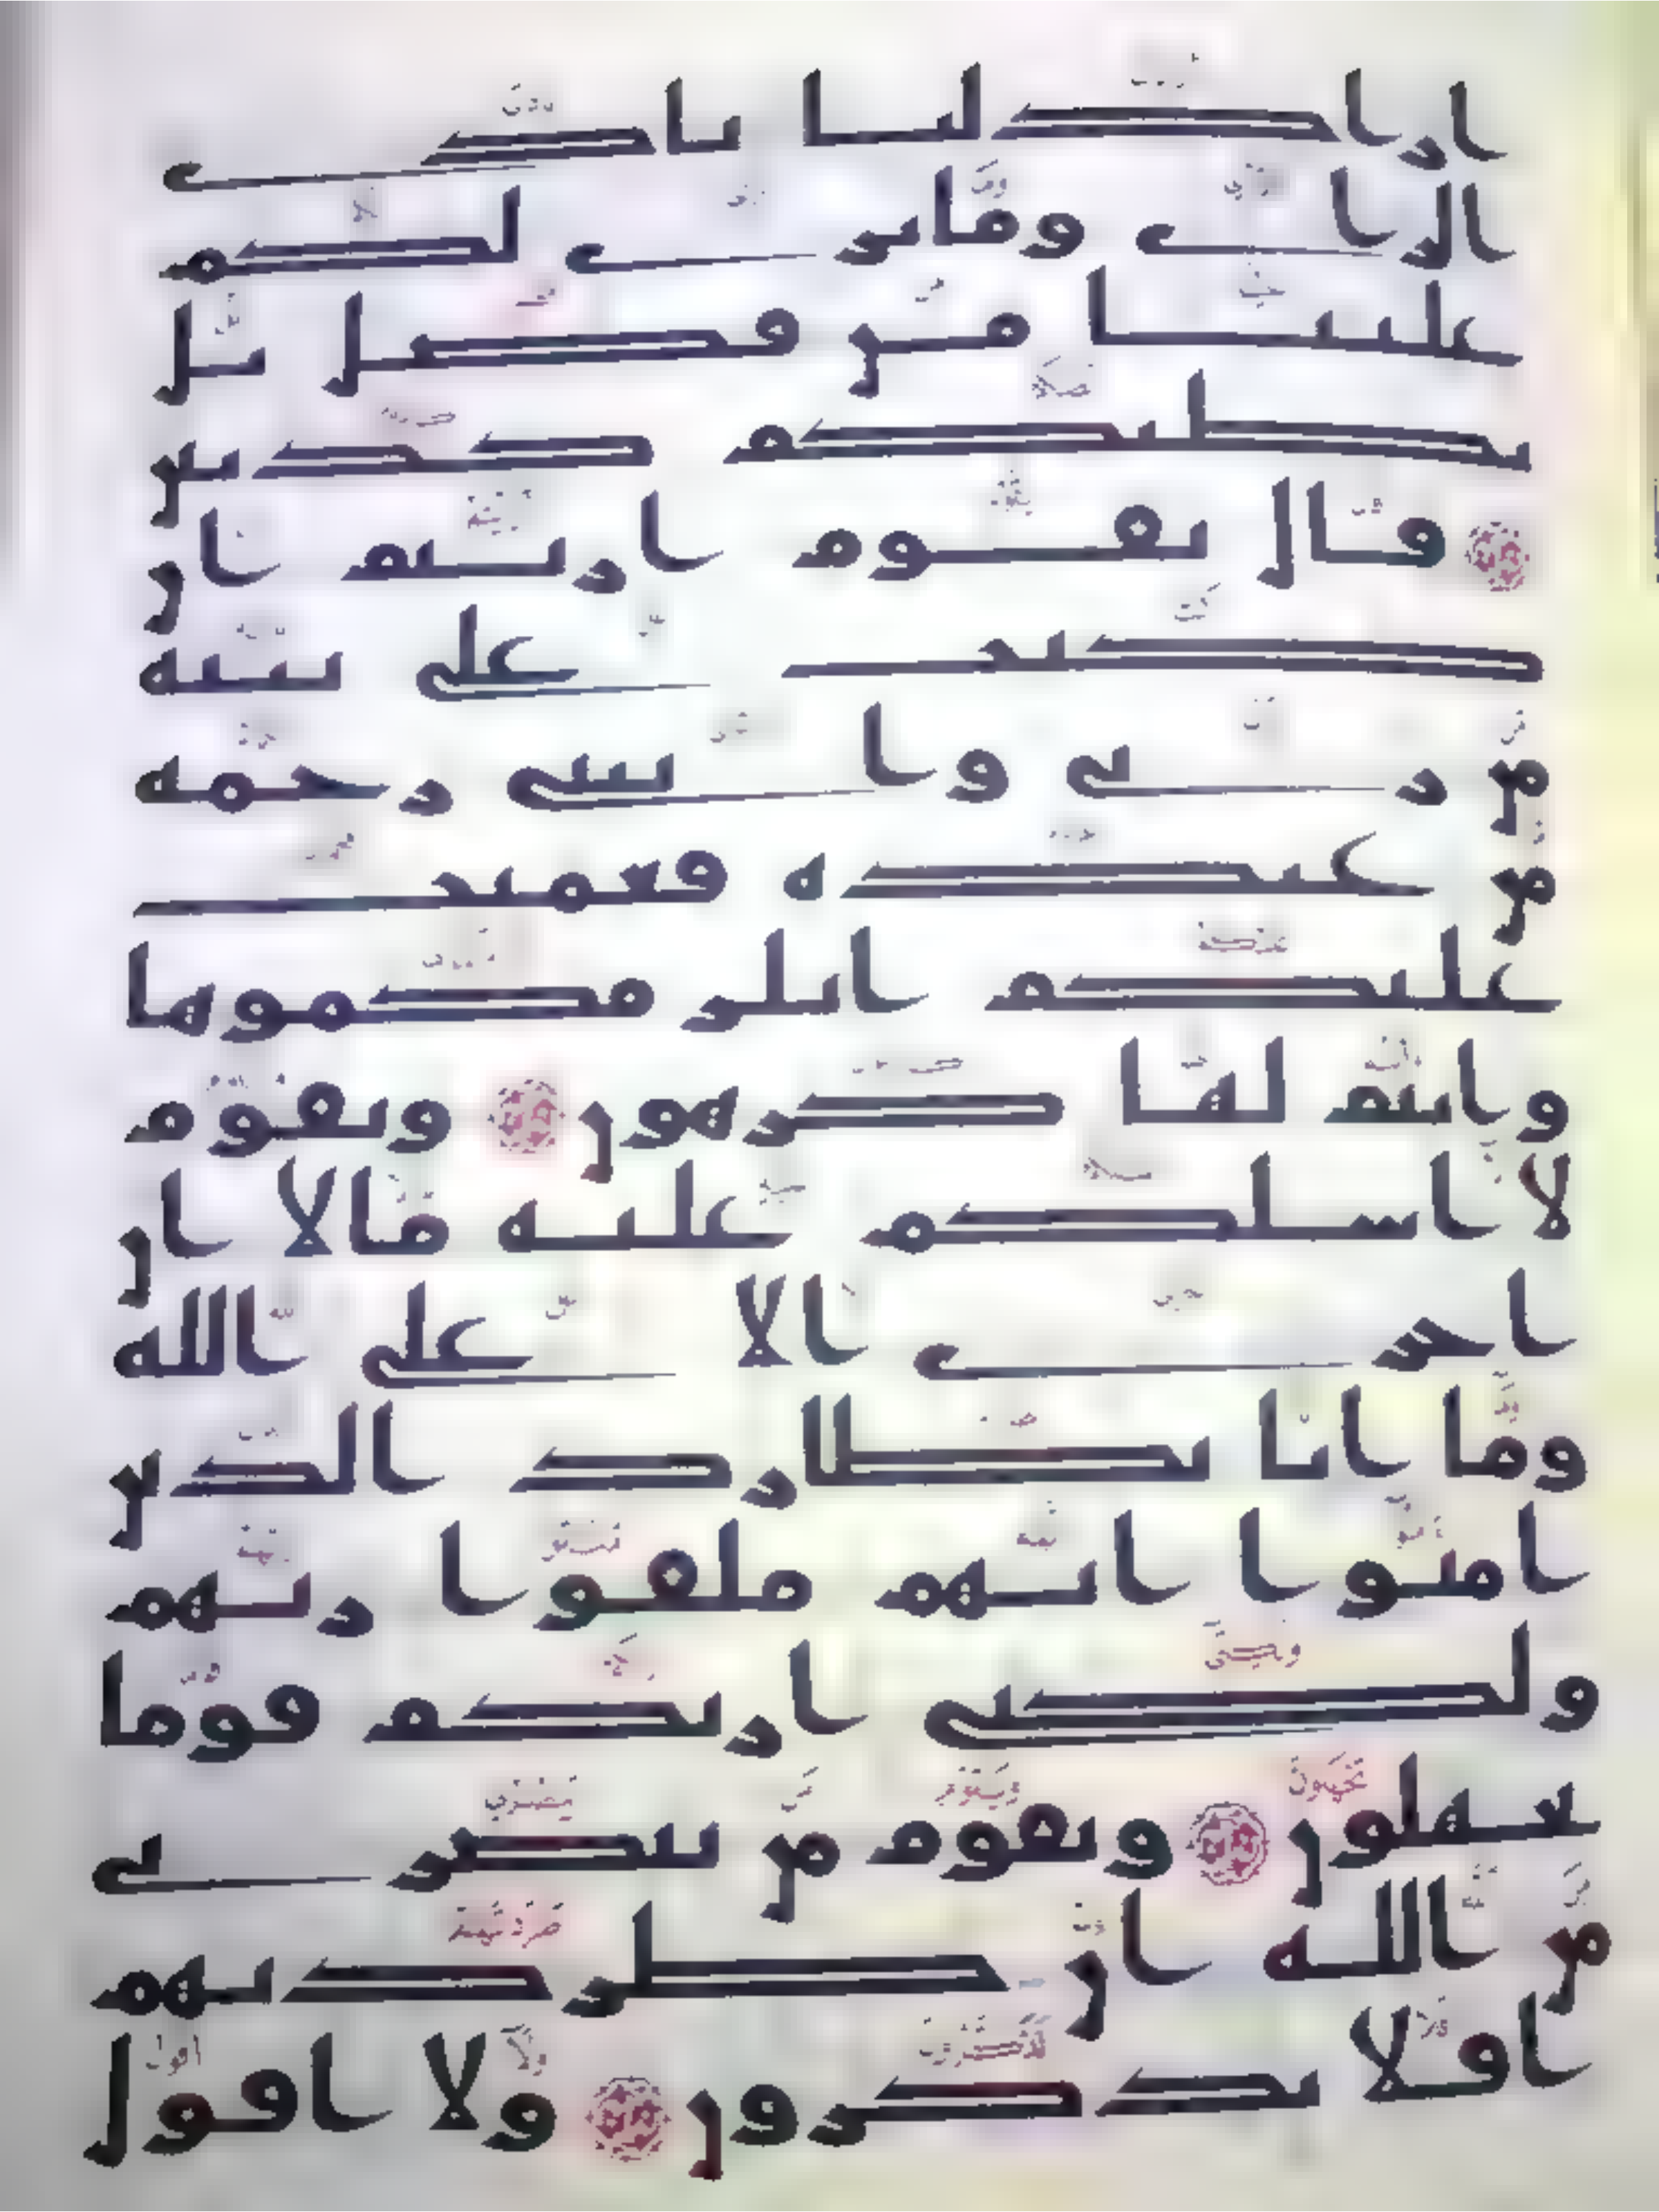 اراذلنا بادى
الراى وما نرى لكم
علينا من فضل بل
نظنكم كذبين
قال يقوم اريتم ان
كنت على بينة
من ربى واتينى رحمة
من عنده فعميت
عليكم انلزمكموها
وانتم لها كرهون ويقوم
لا اسلكم عليه مالا ان
اجرى الا على الله
وما انا بطارد الذين
امنوا انهم ملقوا ربهم
ولكنى اريكم قوما
تجهلون ويقوم من ينصرنى
من الله ان طردتهم
افلا تذكرون ولا اقول